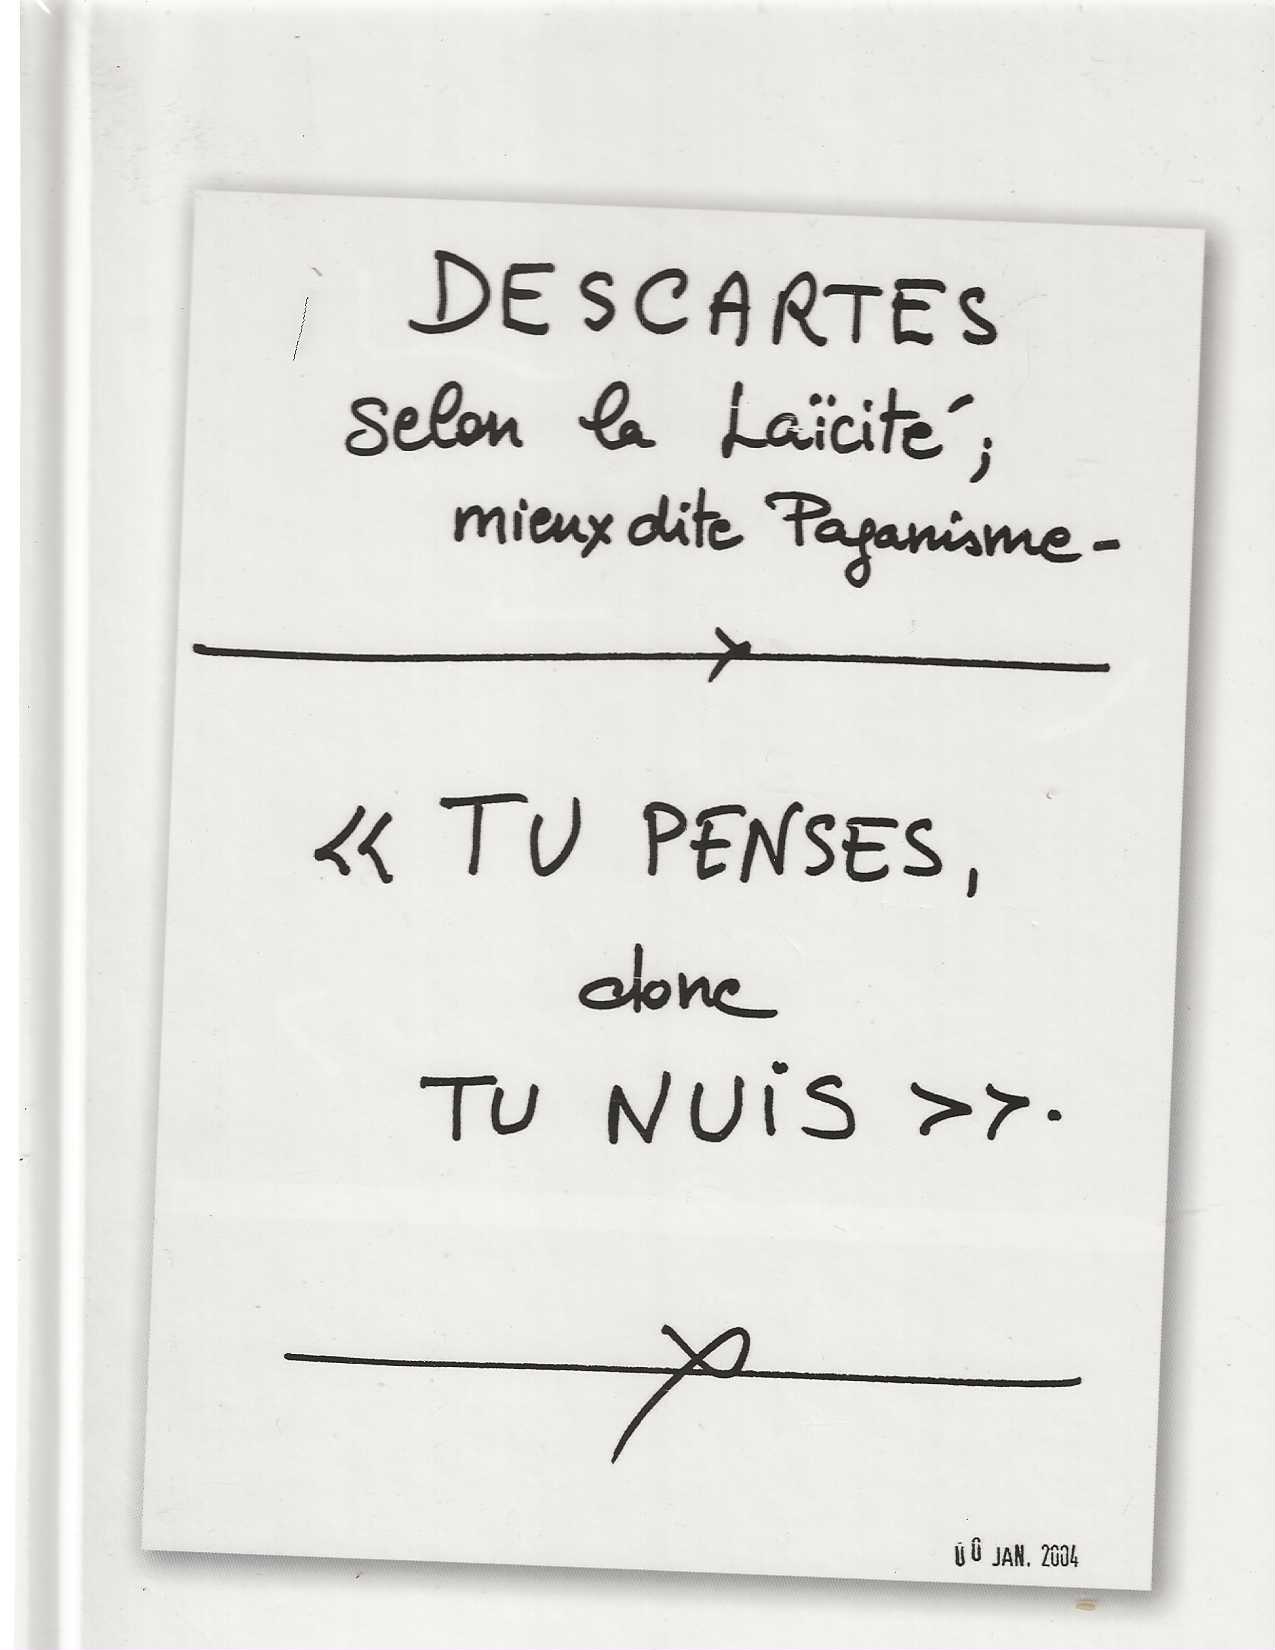 DESCARTES
selon la Laïcité ;
mieux dite Paganisme -
« TU PENSES,
donc
TU NUiS ».
00 JAN. 2004